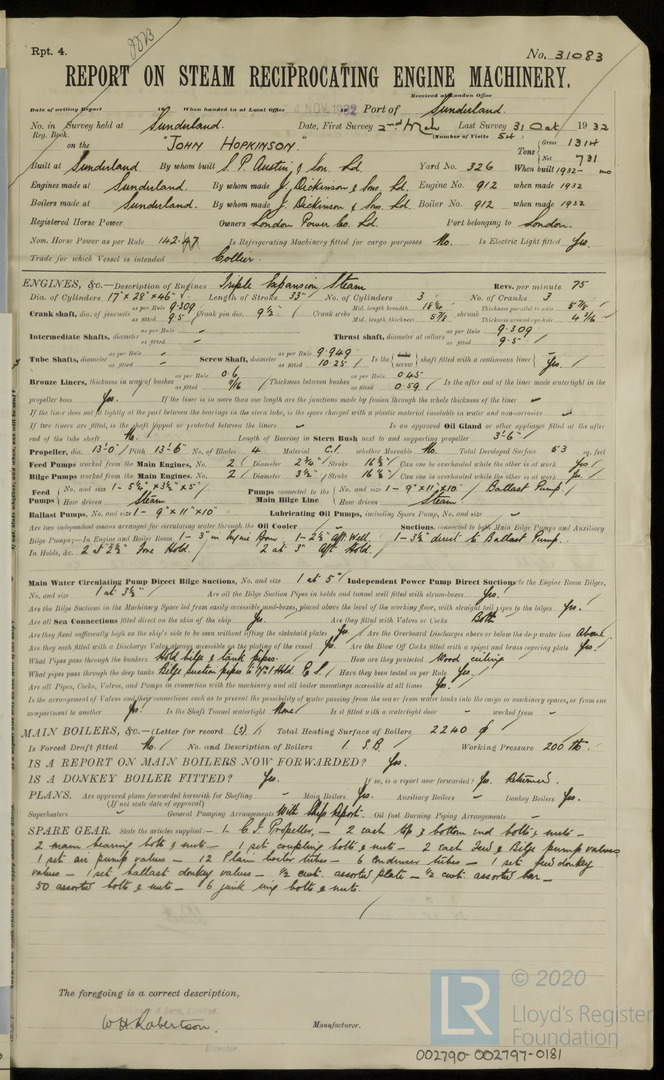 Rpt. 4.
No. 31083
REPORT ON STEAM RECIPROCATING ENGINE MACHINERY.
Received at London Office
Date of writing Report 19 When handed in at Local Office NOV. 1932 Port of Sunderland.
No. in Survey held at Sunderland. Date, First Survey 2nd Last Survey 31 Oct 1932
Reg. Book. (Number of Visits
on the "JOHN HOPKINSON. Tons Gross 1314 Net 731
Built at Sunderland By whom built S. P. Austin & Son. Ld. Yard No. 326 When built 1932
Engines made at Sunderland. By whom made J. Dickinson & Sons, Ld. Engine No. 912 when made 1932
Boilers made at Sunderland. By whom made J. Dickinson & Sons, Ld. Boiler No. 912 when made 1932
Registered Horse Power Owners London Power Co. Ld. Port belonging to London.
Nom. Horse Power as per Rule 142.47 Is Refrigerating Machinery fitted for cargo purposes No. Is Electric Light fitted Yes.
Trade for which Vessel is intended Collier.
ENGINES, &c.—Description of Engines Triple Expansion Steam Revs. per minute 75
Dia. of Cylinders 17" x 28" x 46" Length of Stroke 33" No. of Cylinders 3 No. of Cranks 3
Crank shaft, dia. of journals as per Rule 9.309 as fitted 9.5 Crank pin dia. 9½" Crank webs Mid. length breadth Mid. length thickness 5⅞ shrunk Thickness parallel to axis 5⅞ Thickness around eye-hole 4 3/16
Intermediate Shafts, diameter as per Rule as fitted Thrust shaft, diameter at collars as per Rule 9.309 as fitted 9.5
Tube Shafts, diameter as per Rule as fitted Screw Shaft, diameter as per Rule 9.949 as fitted 10.25 Is the tube screw shaft fitted with a continuous liner Yes.
Bronze Liners, thickness in way of bushes as per Rule 0.6 as fitted 11/16 Thickness between bushes as per Rule 0.45 as fitted 0.59 Is the after end of the liner made watertight in the
propeller boss Yes. If the liner is in more than one length are the junctions made by fusion through the whole thickness of the liner
If the liner does not fit tightly at the part between the bearings in the stern tube, is the space charged with a plastic material insoluble in water and non-corrosive
If two liners are fitted, is the shaft lapped or protected between the liners Is an approved Oil Gland or other appliance fitted at the after
end of the tube shaft No. Length of Bearing in Stern Bush next to and supporting propeller 3'-6"
Propeller, dia. 13'-0" Pitch 13'-6" No. of Blades 4 Material C.I. whether Moveable No. Total Developed Surface 53 sq. feet
Feed Pumps worked from the Main Engines, No. 2 Diameter 2¾" Stroke 16½" Can one be overhauled while the other is at work Yes.
Bilge Pumps worked from the Main Engines, No. 2 Diameter 3½" Stroke 16½" Can one be overhauled while the other is at work Yes.
Feed Pumps No. and size 1 - 5½" x 3¾" x 5" How driven Steam Pumps connected to the Main Bilge Line No. and size 1 - 9" x 11" x 10" Ballast Pump. How driven Steam
Ballast Pumps, No. and size 1 - 9" x 11" x 10" Lubricating Oil Pumps, including Spare Pump, No. and size
Are two independent means arranged for circulating water through the Oil Cooler Suctions, connected to both Main Bilge Pumps and Auxiliary
Bilge Pumps;—In Engine and Boiler Room 1 - 3" in Engine Room. 1 - 2½" Aft. Well. 1 - 3½" direct to Ballast Pump.
In Holds, &c. 2 at 2½" Fore Hold. 2 at 3" Aft. Hold.
Main Water Circulating Pump Direct Bilge Suctions, No. and size 1 at 5" Independent Power Pump Direct Suctions to the Engine Room Bilges,
No. and size 1 at 3½" Are all the Bilge Suction Pipes in holds and tunnel well fitted with strum-boxes Yes.
Are the Bilge Suctions in the Machinery Space led from easily accessible mud-boxes, placed above the level of the working floor, with straight tail pipes to the bilges Yes.
Are all Sea Connections fitted direct on the skin of the ship Yes. Are they fitted with Valves or Cocks Both
Are they fixed sufficiently high on the ship's side to be seen without lifting the stokehold plates Yes. Are the Overboard Discharges above or below the deep water line Above.
Are they each fitted with a Discharge Valve always accessible on the plating of the vessel Yes. Are the Blow Off Cocks fitted with a spigot and brass covering plate Yes.
What Pipes pass through the bunkers Hold bilge & tank pipes. How are they protected Wood ceiling
What pipes pass through the deep tanks Bilge suction pipes to Hold. Have they been tested as per Rule Yes.
Are all Pipes, Cocks, Valves, and Pumps in connection with the machinery and all boiler mountings accessible at all times Yes.
Is the arrangement of Valves and their connections such as to prevent the possibility of water passing from the sea or from water tanks into the cargo or machinery spaces, or from one
compartment to another Yes. Is the Shaft Tunnel watertight None Is it fitted with a watertight door worked from
MAIN BOILERS, &c.—(Letter for record (S).) Total Heating Surface of Boilers 2240
Is Forced Draft fitted No. No. and Description of Boilers 1. S.B. Working Pressure 200 lb.
IS A REPORT ON MAIN BOILERS NOW FORWARDED? Yes.
IS A DONKEY BOILER FITTED? Yes. If so, is a report now forwarded? Yes. Returned.
PLANS. Are approved plans forwarded herewith for Shafting Main Boilers Yes. Auxiliary Boilers Donkey Boilers Yes.
(If not state date of approval)
Superheaters General Pumping Arrangements With Ship Report. Oil fuel Burning Piping Arrangements
SPARE GEAR. State the articles supplied:— 1. C.I. Propeller. - 2 each top & bottom end bolts & nuts -
2 main bearing bolts & nuts - 1 set coupling bolts & nuts - 2 each Feed & Bilge pump valves
1 set air pump valves - 12 Plain boiler tubes - 6 Condenser tubes - 1 set feed donkey
valves - 1 set ballast donkey valves - ½ cwt. assorted plate - ½ cwt. assorted bar -
50 assorted bolts & nuts - 6 junk ring bolts & nuts.
The foregoing is a correct description,
W H Robertson.
Manufacturer.
Director.
© 2020
LR Lloyd's Register
Foundation
002790-002797-0181